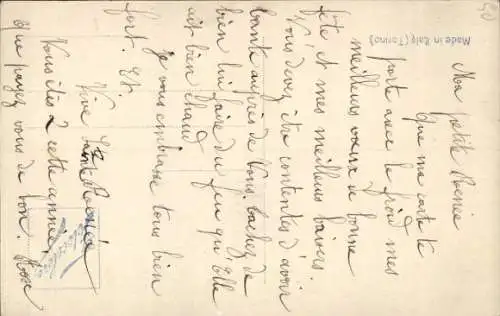 Made in Italy (Torino)
Ma petite Renée
que ma carte te
porte avec le froid mes
meilleurs vœux de bonne
fête, et mes meilleurs baisers.
Vous devez être contentes d'avoir
tante auprès de vous. tachez de
bien lui faire du feu qu'elle
ait bien chaud
je vous embrasse tous bien
fort. Et.
Vive Ste Renée
Vous êtes à cette année,
que payez vous de bon. Rose